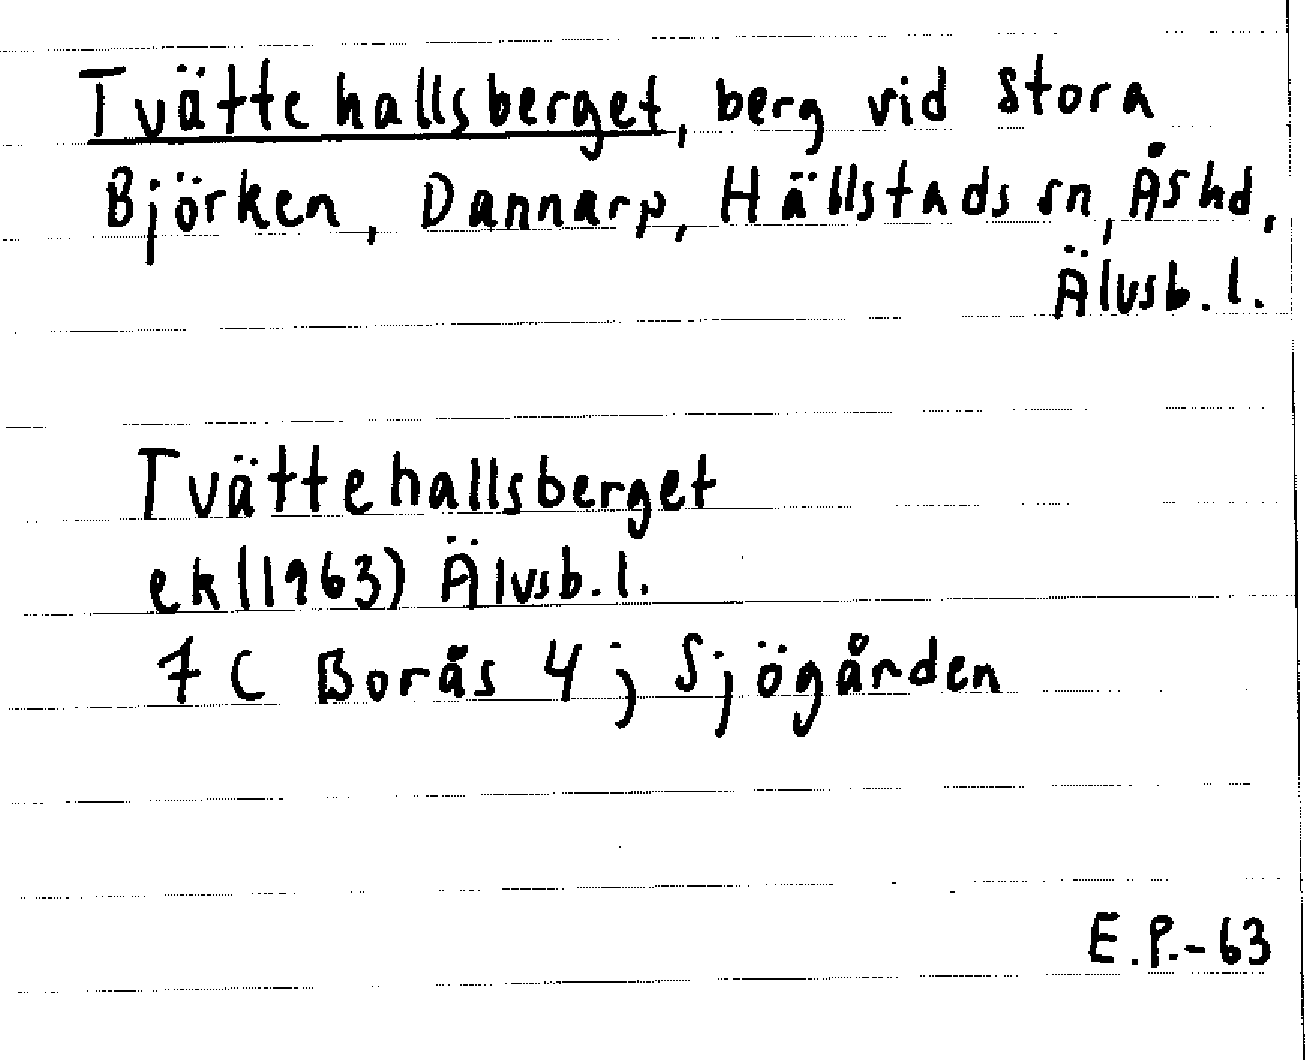 Tvättehallsberget, berg vid Stora
Björken, Dannarp, Hällstads sn, Ås hd,
Älvsb. l.
Tvättehallsberget
ek (1963) Älvsb. l.
7 C Borås 4 j Sjögården
E.P.-63